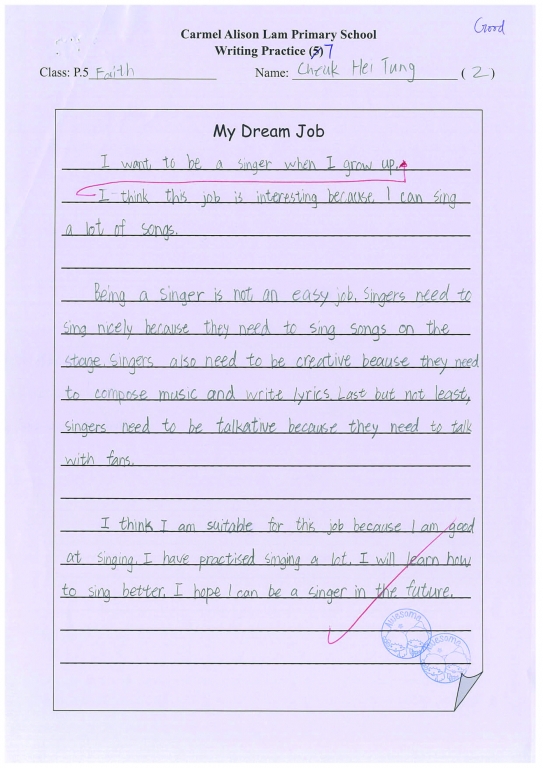 Good
Carmel Alison Lam Primary School
Writing Practice (5) 7
Class: P.5 Faith Name: Cheuk Hei Tung (2)
My Dream Job
I want to be a singer when I grow up.
I think this job is interesting because I can sing
a lot of songs.
Being a singer is not an easy job. Singers need to
sing nicely because they need to sing songs on the
stage. Singers also need to be creative beause they need
to compose music and write lyrics. Last but not least,
singers need to be talkative because they need to talk
with fans.
I think I am suitable for this job because I am good
at singing. I have practised singing a lot. I will learn how
to sing better. I hope I can be a singer in the future.
Awesome
Awesome